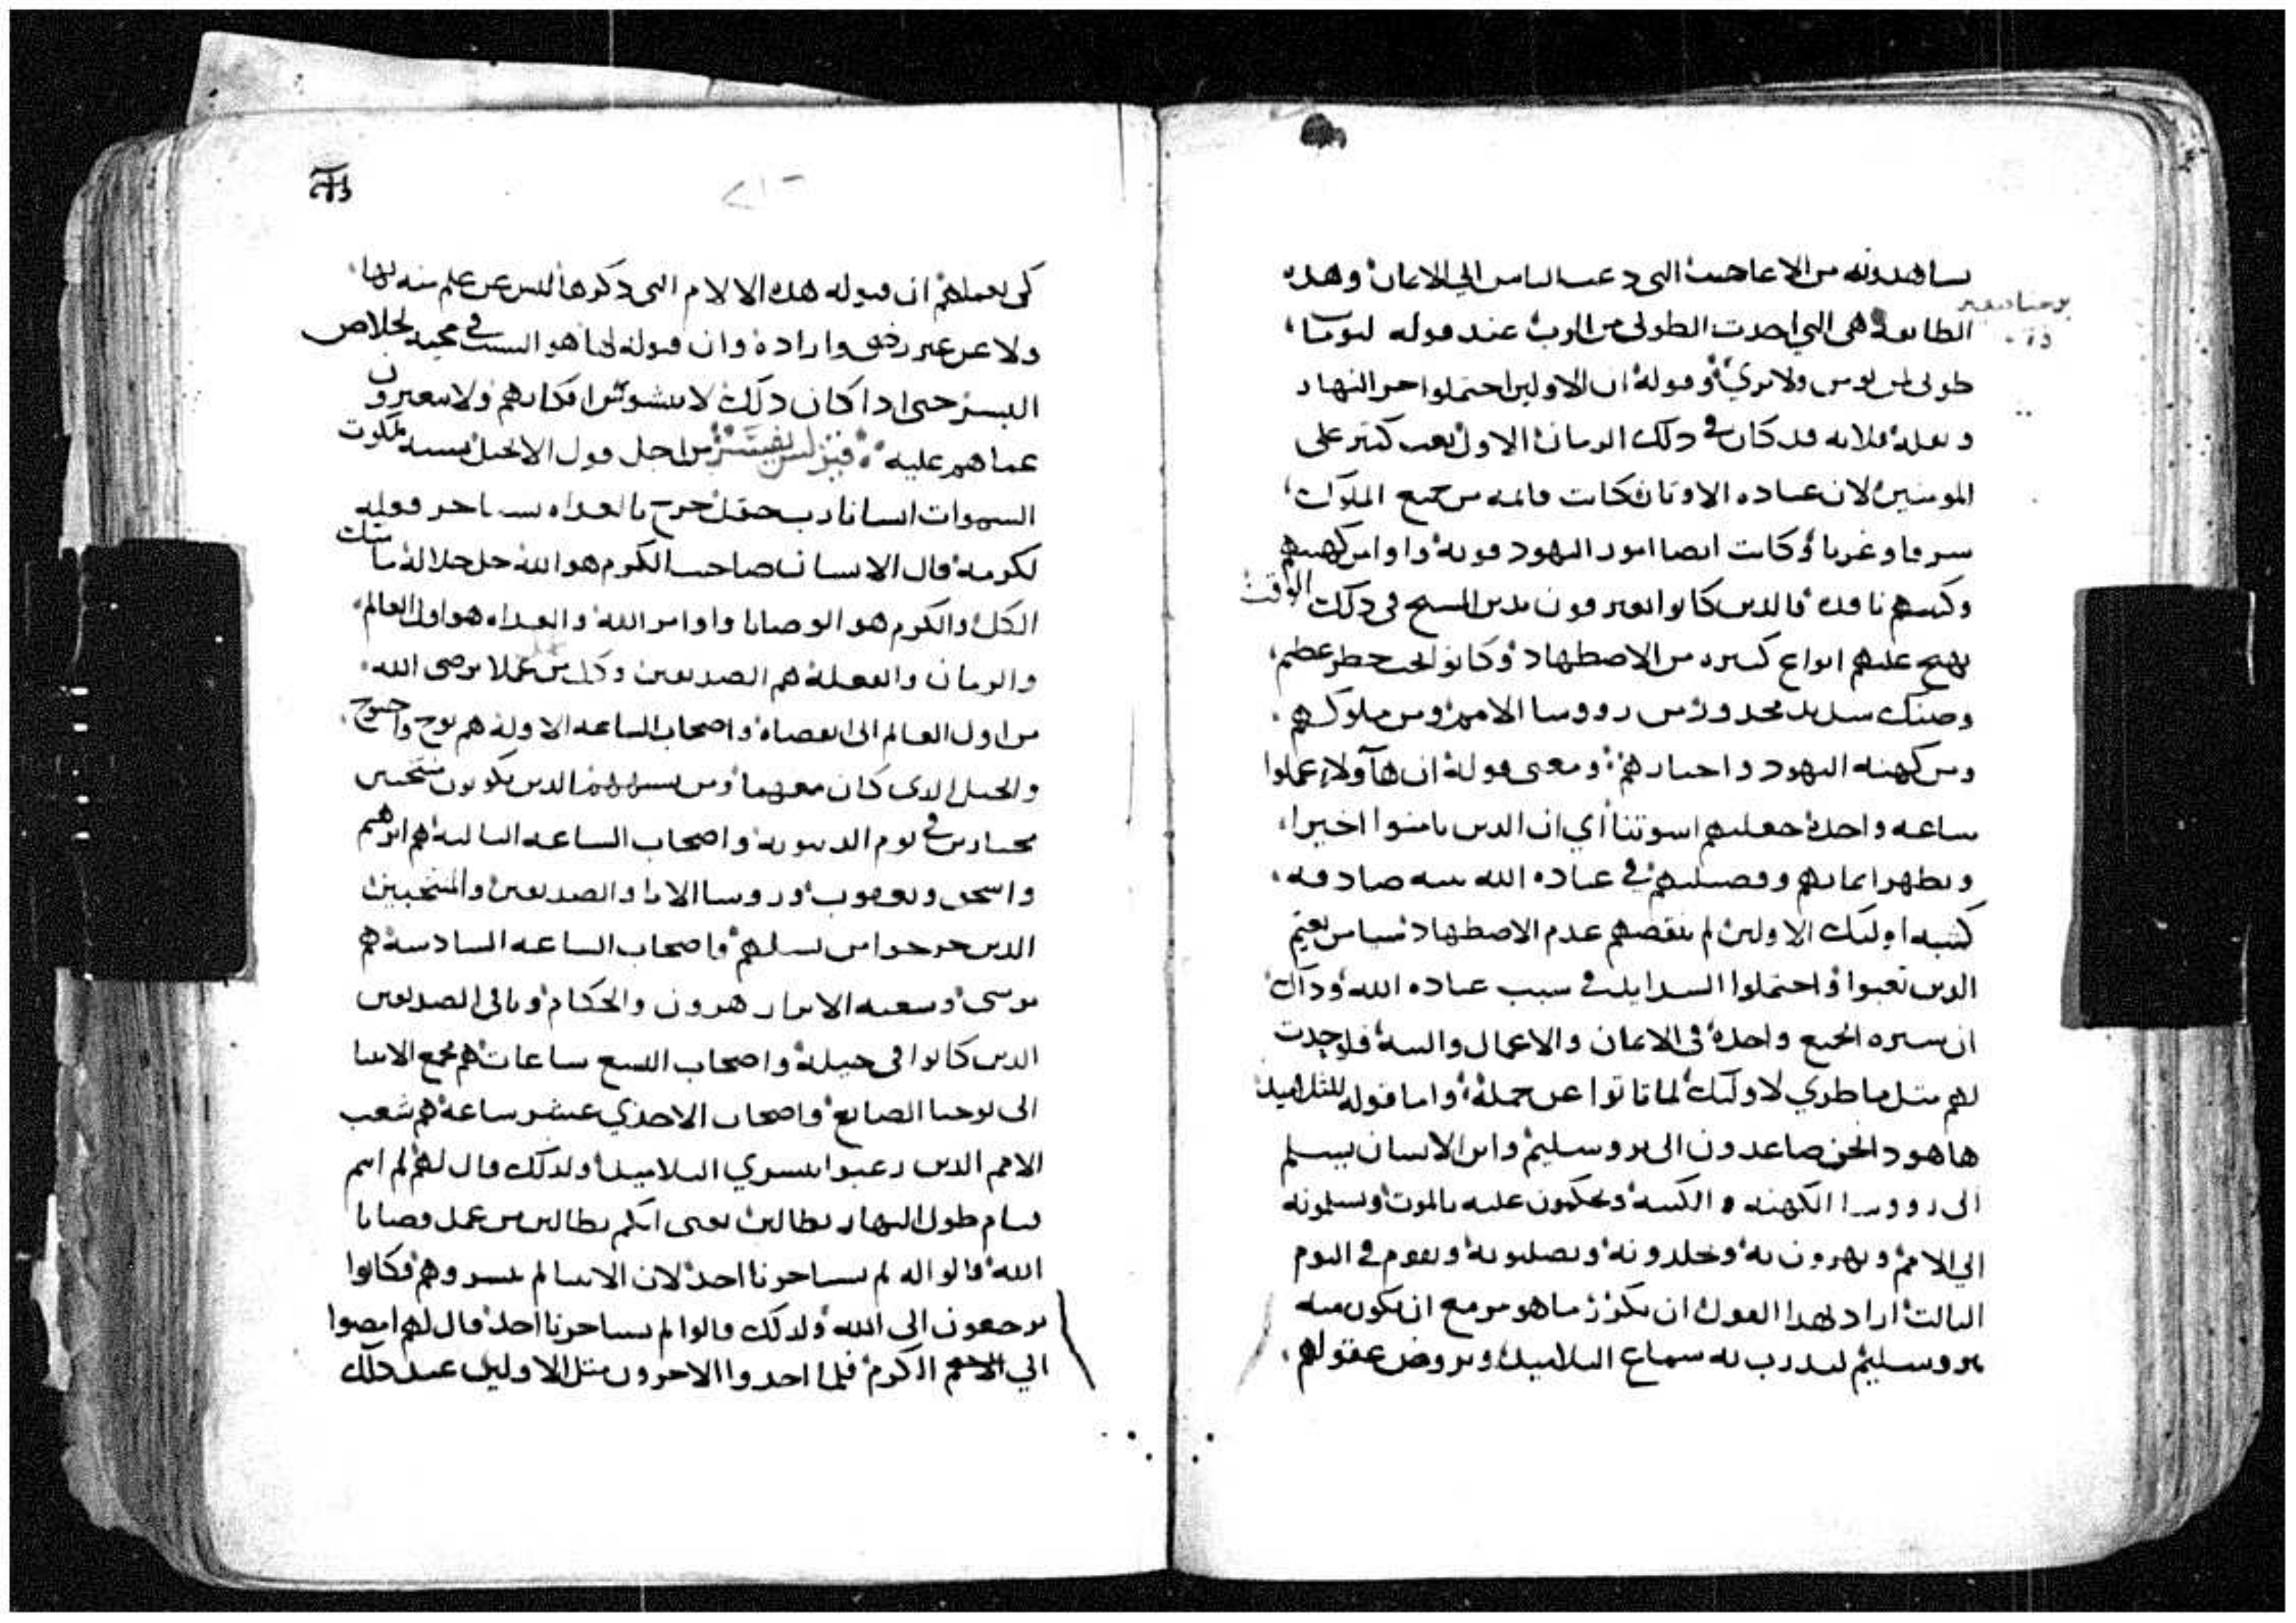 يساهدونه من الاعاجيب التي دعت الناس الي الايمان وهده
الطايفة هي التي اخدت الطوبي من الرب عند قوله لتوما
طوبى لمن يومن ولا يري وقوله ان الاولين احتملوا حر النهار
وثقله فلانه قد كان في دلك الزمان الاول تعب كثير على
المومنين لان عباده الاوتان كانت قايمه من جميع الملوك
شرقا وغربا وكانت ايضا امور اليهود قويه واوامر كهنتهم
وكتبهم نافده فالدين كانوا يعترفون بدين المسيح في دلك الوقت
يهيج عليهم انواع كثيره من الاضطهاد وكانو تحت خطر عظيم
وضنك شديد محدور من رووسا الامم ومن ملوكهم
ومن كهنه اليهود واحبارهم ومعنى قوله ان هاولاء عملوا
ساعه واحدة جعلتهم اسوتنا أي ان الدين يامنوا اخيرا
ويظهر ايمانهم وفضيلتهم في عباده الله بنيه صادقه
كنيه اوليك الاولين لم ينقصهم عدم الاضطهاد شيا من نعيم
الدين تعبوا واحتملوا الشدايد في سبب عباده الله وداك
ان سيره الجميع واحدة في الايمان والاعمال والنية فلو حدت
لهم متل ما طري لاوليك لماتاتوا عن حمله واما قوله للتلاميد
هاهودا نحن صاعدون الى يروسليم وابن الانسان يسلم
الى رووسا الكهنه والكتبة ويحكمون عليه بالموت ويسلمونه
الي الامم ويهزون به ويجلدونه ويصلبونه ويقوم في اليوم
التالت اراد بهدا القول ان يكرر ما هو مزمع ان يكون منه
بيروسليم ليدرب به سماع التلاميد ويروض عقولهم
كى يعلمهم ان قبوله هده الالام التي دكرها ليس عن علم منه بها
ولا عن غير رضى وارادة وان قبوله لها هو السبب في محبه لخلاص
البشر حتى ادا كان دلك لا يتشوش افكارهم ولا يتغيرون
عماهم عليه من اجل قول الانجيل يشبه ملكوت
السموات انسانا رب حقل خرج بالغداه يستاجر فعله
لكرمه قال الانسان صاحب الكرم هو الله جل جلاله مالك
الكل والكرم هو الوصايا واوامر الله والغداه هو اول العالم
والزمان والفعلة هم الصديقين وكل من عمل يرضى الله
من اول العالم الى انقضاه واصحاب الساعه الاولة هم نوح واخنوخ
والجيل الدى كان معهما ومن يشبههما الدين يكونون منتخبين
مختارين في يوم الدينونة واصحاب الساعه التالته هم ابرهيم
واسحق ويعقوب وروسا الابا والصديقين والمنتخبين
الدين خرجوا من نسلهم واصحاب الساعه السادسة هم
موسى وشعبه الابرار هرون والحكام وباقى الصديقين
الدين كانوا في جيله واصحاب التسع ساعات هم جميع الانبيا
الى يوحنا الصابغ واصحاب الاحدي عشر ساعة هم شعب
الامم الدين رغبوا ببشري التلاميد ولدلك قال لهم لم انتم
قيام طول النهار بطالين يعنى انكم بطالين من عمل وصايا
الله قالوا له لم يستاجرنا احد لان الانبيا لم يبشروهم فكانوا
يرجعون الى الله ولدلك قالوا لم يستاجرنا احد قال لهم امضوا
الي الكرم فلما اخدوا الاخرون متل الاولين عند دلك